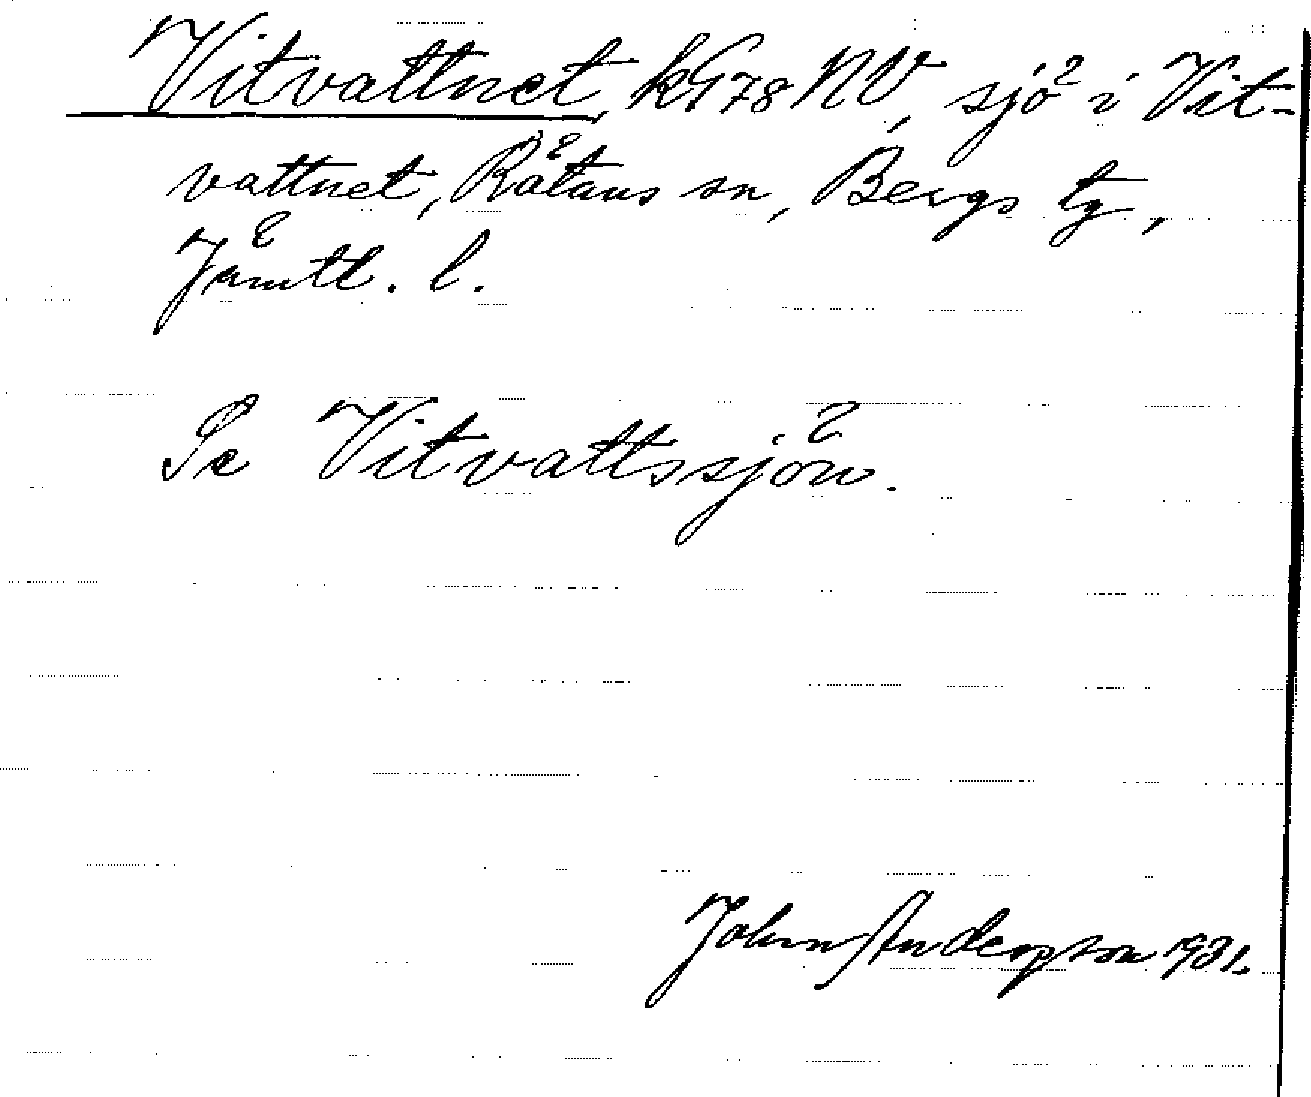 Vitvattnet, kG78NV, sjö i Vit-
vattnet, Rätans sn, Bergs tg,
Jämtl. l.
Se Vitvattssjön.
John Andersson 1931.